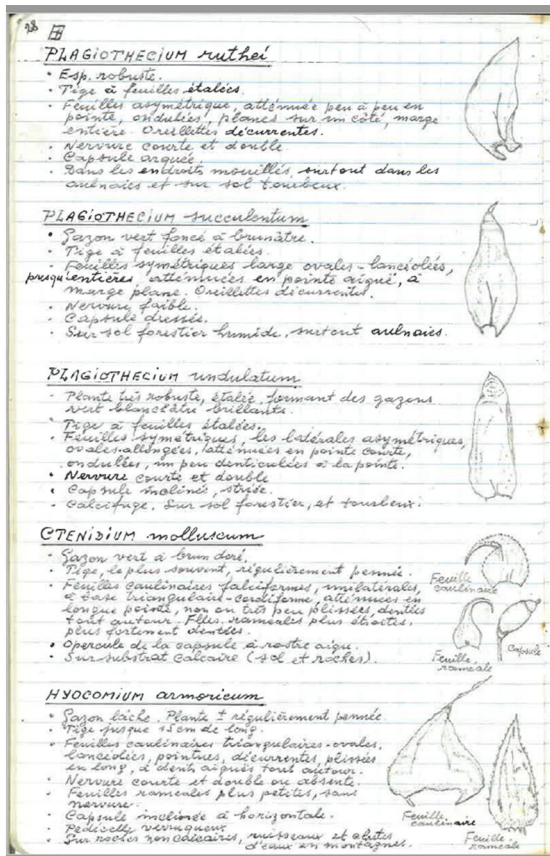 28
PLAGIOTHECIUM ruthei
• Esp. robuste.
• Tige à feuilles étalées.
• Feuilles asymétrique, atténuée peu à peu en
pointe, ondulées, planes sur un côté, marge
entière. Oreillettes décurrentes.
• Nervure courte et double.
• Capsule arquée.
• Dans les endroits mouillés, surtout dans les
aulnaies et sur sol tourbeux.
PLAGIOTHECIUM succulentum
• Gazon vert foncé à brunâtre.
• Tige à feuilles étalées.
• Feuilles symétriques large ovales-lancéolées,
presqu'entières, atténuées en pointe aiguë, à
marge plane. Oreillettes décurrentes.
• Nervure faible.
• Capsule dressée.
• Sur sol forestier humide, surtout aulnaies.
PLAGIOTHECIUM undulatum
• Plante très robuste, étalée, formant des gazons
vert blanchâtre brillants.
• Tige à feuilles étalées.
• Feuilles symétriques, les latérales asymétriques,
ovales-allongées, atténuées en pointe courte,
ondulées, un peu denticulées à la pointe.
• Nervure courte et double
• Capsule inclinée, striée.
• Calcifuge. Sur sol forestier, et tourbeux.
CTENIDIUM molluscum
• Gazon vert à brun doré.
• Tige, le plus souvent, régulièrement pennée.
• Feuilles caulinaires falciformes, unilatérales,
à base triangulaire-cordiforme, atténuées en
longue pointe, non ou très peu plissées, dentées
tout autour. Flles. raméales plus étroites,
plus fortement dentées.
• Opercule de la capsule à rostre aigu.
• Sur substrat calcaire (sol et roches).
Feuille
caulinaire
Feuille
raméale
Capsule
HYOCOMIUM armoricum
• Gazon lâche. Plante ± régulièrement pennée.
• Tige jusque 15cm de long.
• Feuilles caulinaires triangulaires-ovales,
lancéolées, pointues, décurrentes, plissées
en long, à dents aiguës tout autour.
• Nervure courte et double ou absente.
• Feuilles raméales plus petites, sans
nervure.
• Capsule inclinée à horizontale.
• Pédicelle verruqueux.
• Sur roches non calcaires, ruisseaux et chutes
d'eaux en montagnes.
Feuille
caulinaire
Feuille
raméale